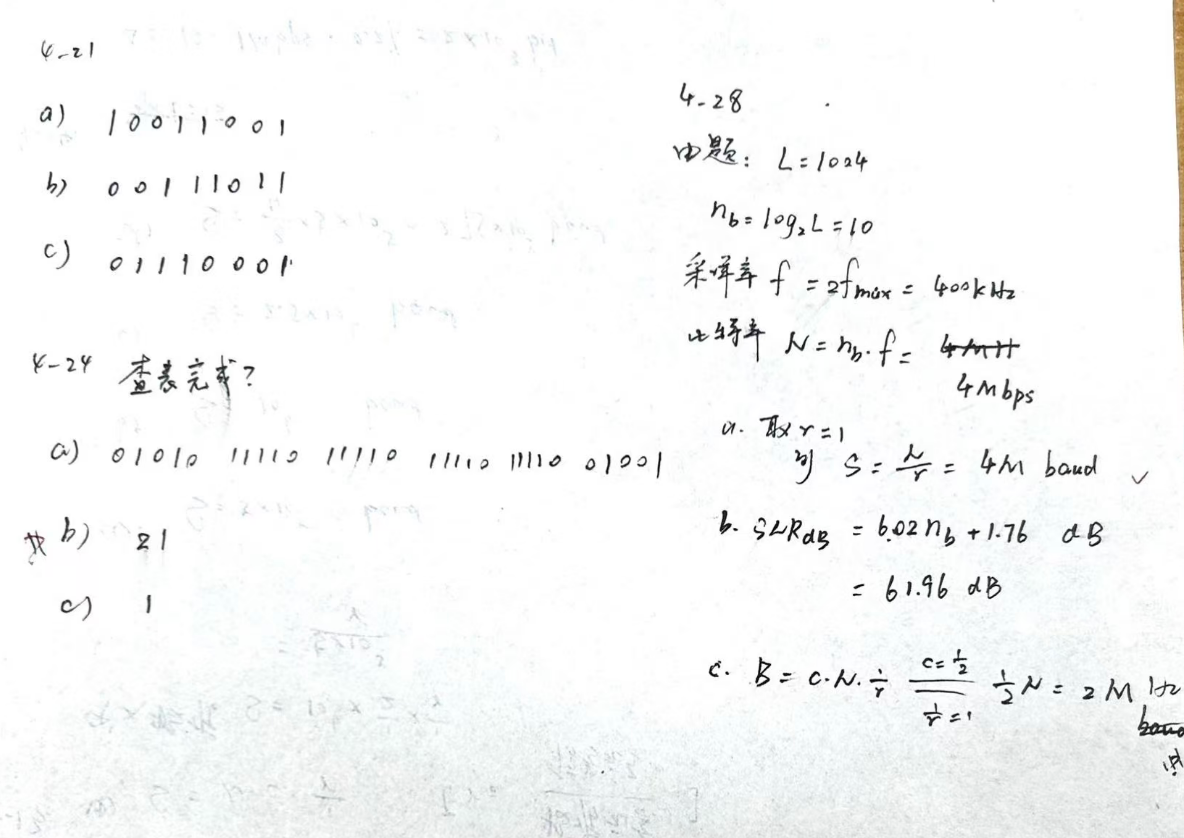 4-21
a) 10011001
b) 00111011
c) 01110001
4-24 查表完成?
a) 01010 11110 11110 11110 11110 01001
b) 21
c) 1
4-28
由题: L=1024
n_b=log₂L=10
采样率 f=2f_max=400kHz
比特率 N=n_b·f=
4Mbps
a. 取r=1
则 S=N/r=4M baud ✓
b. SNR_dB=6.02n_b+1.76 dB
=61.96 dB
c. B=c·N·1/r c=1/2 1/r=1 1/2N=2M Hz